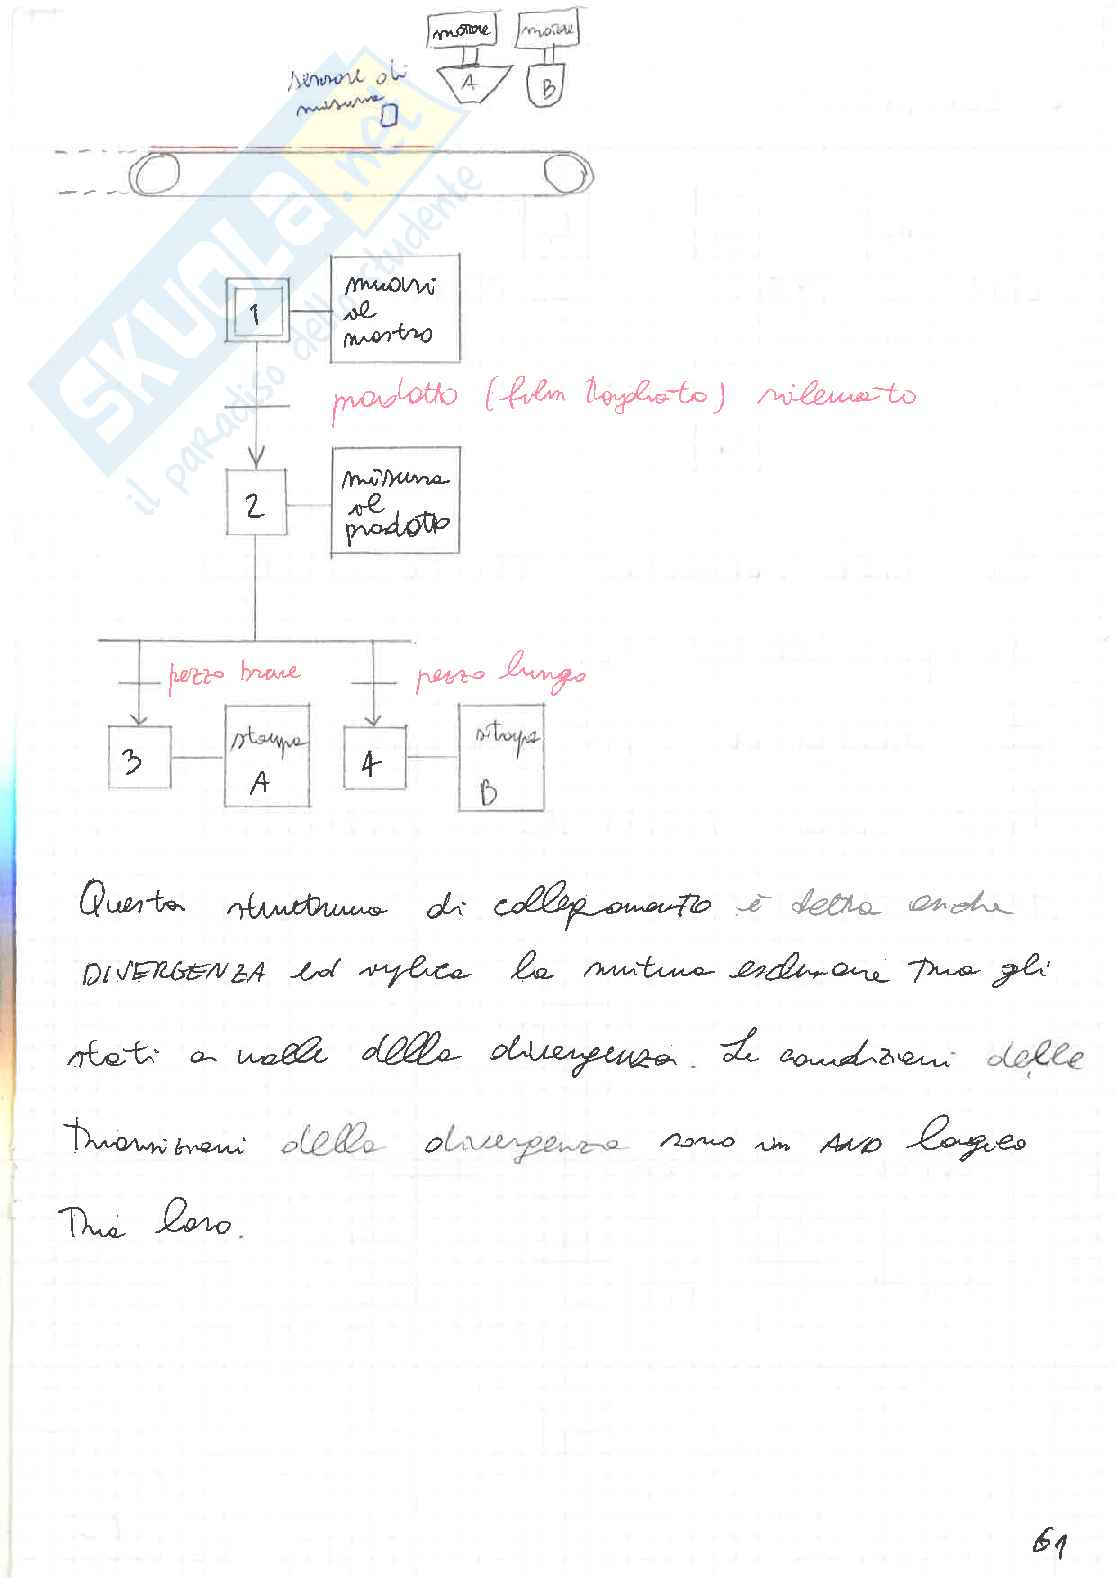 motore motore
sensore di
misura
A B
SKUOLA.net
il paradiso dello studente
1
muovi
il
nastro
prodotto (film tagliato) rilevato
2
misura
il
prodotto
pezzo breve pezzo lungo
3
stampa
A
4
stampa
B
Questa struttura di collegamento è detta anche
DIVERGENZA ed esplica la mutua esclusione tra gli
stati a valle della divergenza. Le condizioni delle
transizioni della divergenza sono in AND logico
tra loro.
61